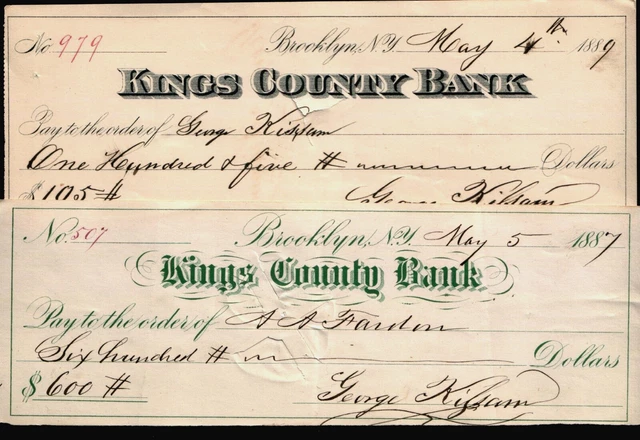 No 979 Brooklyn, N.Y. May 4th 1889
KINGS COUNTY BANK
Pay to the order of George Kissam
One Hundred & five # Dollars
$105 # George Kissam
No. 507 Brooklyn, N.Y. May 5 1887
Kings County Bank
Pay to the order of A A Fardon
Six hundred # Dollars
$600 #
George Kissam